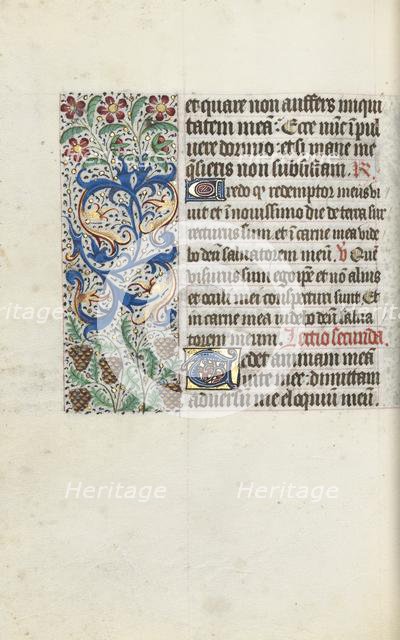 et quare non auffers iniqui
tatem meā. Ecce nūc ī pul
vere dormio et si mane me
quesieris non subsistam. R.
Credo qꝫ redemptor meus vi
uit et ī nouissimo die de terra sur
recturus sum. et ī carne mea vide
bo deū saluatorem meū. V Quē
visurus sum ego ipē et nō alius
et oculi mei conspecturi sunt Et
in carne mea videbo deū salua
torem meum. Lectio secunda.
Tedet animam meā
vite mee dimittam
aduersū me eloquiū meū
Heritage
Heritage
Heritage
Heritage